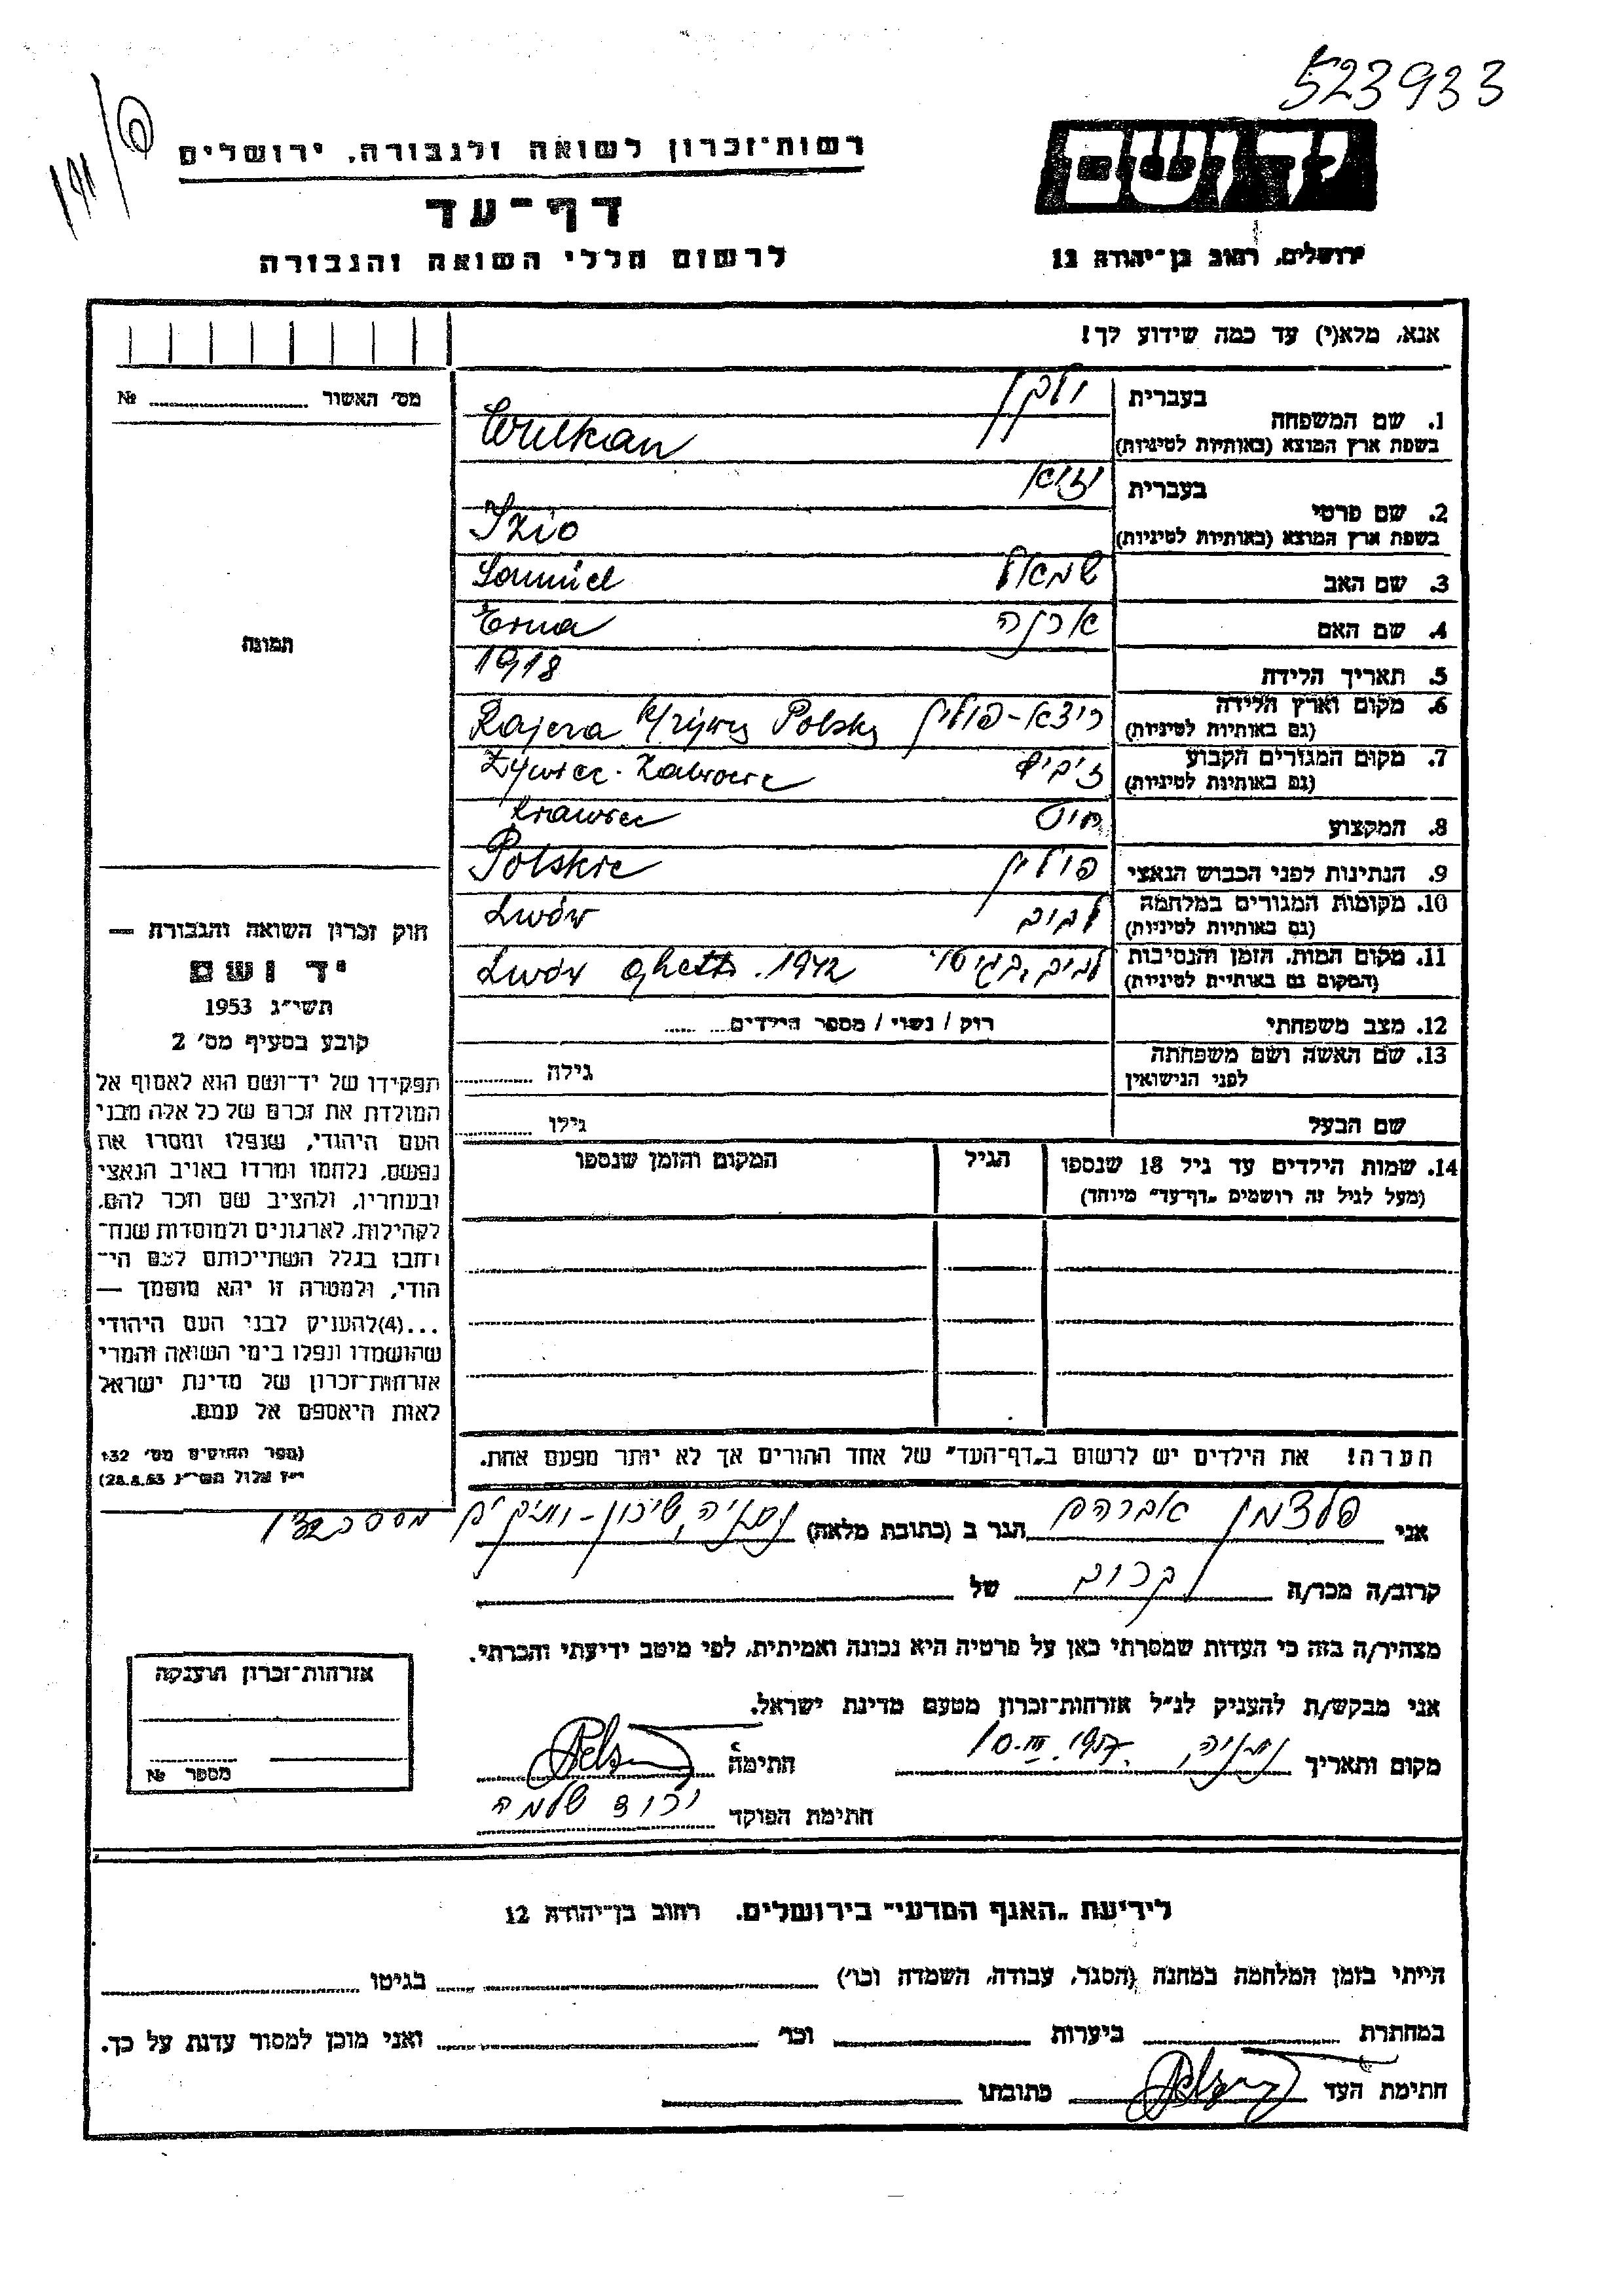 523933
רשות־זכרון לשואה ולגבורה, ירושלים
דף־עד
לרשום חללי השואה והגבורה
יד ושם
ירושלים, רחוב בן־יהודה 12
אנא, מלא(י) עד כמה שידוע לך!
מס׳ האשור № 
1. שם המשפחה
בעברית ולקן
בשפת ארץ המוצא (באותיות לטיניות) Wulkan
2. שם פרטי
בעברית
בשפת ארץ המוצא (באותיות לטיניות) Izio
3. שם האב שמואל Samuel
4. שם האם ארנה Erna
5. תאריך הלידה 1918
6. מקום וארץ הלידה
(גם באותיות לטיניות) פולין Rajcza
7. מקום המגורים הקבוע
(גם באותיות לטיניות) Żywiec-Zabłocie
8. המקצוע חייט Krawiec
9. הנתינות לפני הכבוש הנאצי פולין Polskie
10. מקומות המגורים במלחמה
(גם באותיות לטיניות) לבוב Lwów
11. מקום המות, הזמן והנסיבות
(המקום גם באותיות לטיניות) לבוב, בגיטו Lwów ghetto. 1942
12. מצב משפחתי רוק / נשוי / מספר הילדים
13. שם האשה ושם משפחתה
לפני הנישואין גילה
שם הבעל גילו
14. שמות הילדים עד גיל 18 שנספו הגיל המקום והזמן שנספו
(מעל לגיל זה רושמים „דף־עד״ מיוחד)
הערה! את הילדים יש לרשום ב„דף־העד״ של אחד ההורים אך לא יותר מפעם אחת.
תמונה
חוק זכרון השואה והגבורה —
יד ושם
תשי״ג 1953
קובע בסעיף מס׳ 2
תפקידו של יד־ושם הוא לאסוף אל
המולדת את זכרם של כל אלה מבני
העם היהודי, שנפלו ומסרו את
נפשם, נלחמו ומרדו באויב הנאצי
ובעוזריו, ולהציב שם וזכר להם,
לקהילות, לארגונים ולמוסדות שנח־
רבו בגלל השתייכותם לעם הי־
הודי, ולמטרה זו יהא מוסמך —
...(4)להעניק לבני העם היהודי
שהושמדו ונפלו בימי השואה והמרי
אזרחות־זכרון של מדינת ישראל
לאות היאספם אל עמם.
(ספר החוקים מס׳ 132
י״ז אלול תשי״ג 28.8.53)
אני פלצמן אברהם הגר ב (כתובת מלאה) נתניה, שיכון-ותיקים
קרוב/ה מכר/ה קרוב של
מצהיר/ה בזה כי העדות שמסרתי כאן על פרטיה היא נכונה ואמיתית, לפי מיטב ידיעתי והכרתי.
אני מבקש/ת להעניק לנ״ל אזרחות־זכרון מטעם מדינת ישראל.
מקום ותאריך נתניה, 10.III.1957. חתימה
חתימת הפוקד
אזרחות־זכרון הוענקה
מספר №
לידיעת „האגף המדעי״ בירושלים, רחוב בן־יהודה 12
הייתי בזמן המלחמה במחנה (הסגר, עבודה, השמדה וכו׳) בגיטו
במחתרת ביערות וכו׳ ואני מוכן למסור עדות על כך.
חתימת העד כתובתו